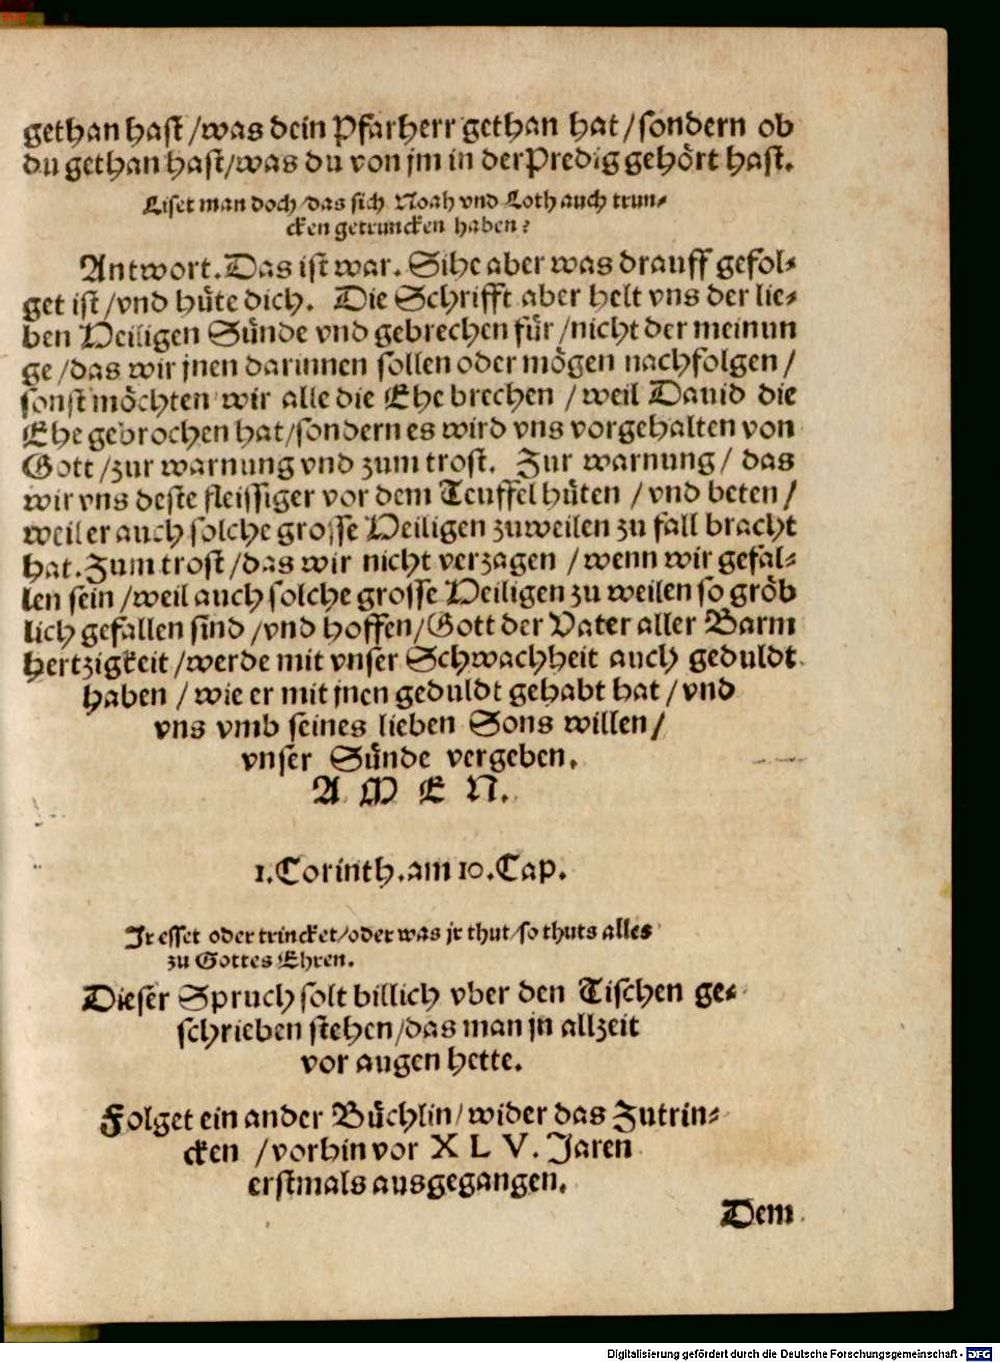 gethan hast / was dein Pfarherr gethan hat / sondern ob
du gethan hast / was du von jm in der Predig gehört hast.
Liset man doch / das sich Noah vnd Loth auch trun-
cken getruncken haben?
Antwort. Das ist war. Sihe aber was drauff gefol-
get ist / vnd hüte dich. Die Schrifft aber helt vns der lie-
ben Heiligen Sünde vnd gebrechen für / nicht der meinun
ge / das wir jnen darinnen sollen oder mögen nachfolgen /
sonst möchten wir alle die Ehe brechen / weil Dauid die
Ehe gebrochen hat / sondern es wird vns vorgehalten von
Gott / zur warnung vnd zum trost. Zur warnung / das
wir vns deste fleissiger vor dem Teuffel hüten / vnd beten /
weil er auch solche grosse Heiligen zuweilen zu fall bracht
hat. Zum trost / das wir nicht verzagen / wenn wir gefal-
len sein / weil auch solche grosse Heiligen zu weilen so gröb
lich gefallen sind / vnd hoffen / Gott der Vater aller Barm
hertzigkeit / werde mit vnser Schwachheit auch geduldt
haben / wie er mit jnen geduldt gehabt hat / vnd
vns vmb seines lieben Sons willen /
vnser Sünde vergeben.
A M E N.
1. Corinth. am 10. Cap.
Jr esset oder trincket / oder was jr thut / so thuts alles
zu Gottes Ehren.
Dieser Spruch solt billich vber den Tischen ge-
schrieben stehen / das man jn allzeit
vor augen hette.
Folget ein ander Büchlin / wider das Zutrin-
cken / vorhin vor X L V. Jaren
erstmals ausgegangen.
Dem
Digitalisierung gefördert durch die Deutsche Forschungsgemeinschaft - DFG